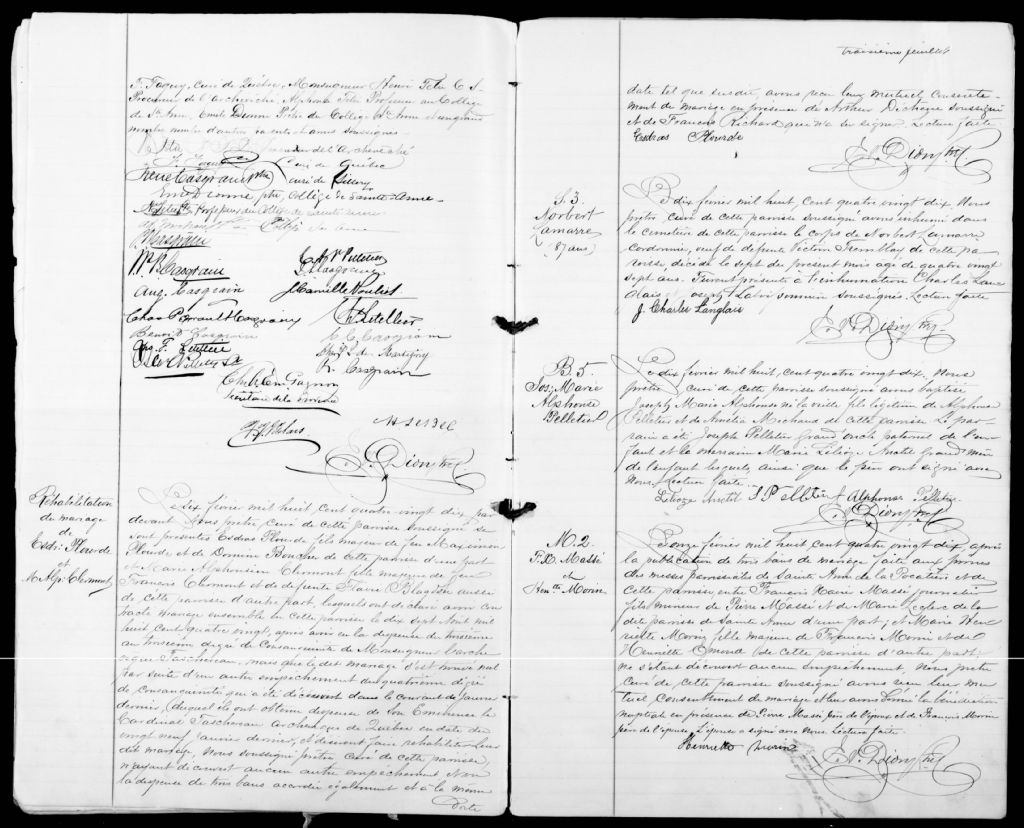 F. Faguy, curé de Québec, Monseigneur Henri Têtu C S
Procureur de l'archevêché, Alphonse Têtu Professeur au Collège
de Ste Anne, Emile Dionne Prêtre du Collège Ste Anne et un grand
nombre d'autres parents et amis soussignés.
de l'Archevêché
F. Faguy curé de Québec
René Casgrain ptre curé de Sillery
Em. Dionne ptre, Collège de Sainte-Anne
Professeur au Collège de Sainte Anne
Casgrain
P. B. Casgrain
Pelletier
Casgrain
Aug. Casgrain
J. Camille Pouliot
Chas P. Casgrain
Letellier
Benoit Casgrain
Casgrain
F. Letellier
de Martigny
Casgrain
Chs. Em Gagnon
E. P. Dion Ptre
Réhabilitation
de mariage
de
Esdr. Plourde
et
M. Alp. Clermont
Le dix février mil huit cent quatre vingt dix par
devant Nous prêtre, curé de cette paroisse soussigné se
sont présentés Esdras Plourde fils majeur de feu Maximen
Plourde, et de Domine Boucher de cette paroisse d'une part
et Marie Alphonsine Clermont fille majeure de feu
Francois Clermont et de défunte Flavie Blagdon aussi
de cette paroisse d'autre part, lesquels ont déclaré avoir con
tracté mariage ensemble en cette paroisse le dix sept Août mil
huit cent quatre vingt, après avoir eu la dispense du troisième
au troisième degré de Consanguinité de Monseigneur l'arche
vêque Taschereau, mais que le dit mariage s'est trouvé nul
par suite d'un autre empêchement du quatrième degré
de consanguinité qui a été découvert dans le courant de Janvier
dernier, duquel ils ont obtenu dispense de Son Eminence le
Cardinal Taschereau Archevêque de Québec en date du
vingt neuf Janvier dernier, et désirant faire réhabiliter leur
dit mariage, Nous soussigné prêtre Curé de cette paroisse
n'ayant découvert aucun autre empêchement et vu
la dispense de trois bans accordée également et à la même
date
troisième feuillet
date tel que susdit avons reçu leur mutuel consente-
ment de mariage en présence de Arthur Dechêne soussigné
et de François Richard qui n'a su signer. Lecture faite
Esdras Plourde
E. P. Dion Ptre
S. 3.
Norbert
Lamarre
(87 ans)
Le dix février mil huit, cent quatre vingt dix Nous
prêtre, curé de cette paroisse soussigné avons inhumé dans
le cimetière de cette paroisse le corps de Norbert Lamarre
Cordonnier, veuf de défunte Victoire Tremblay de cette pa
roisse, décédé le sept du présent mois âgé de quatre vingt
sept ans. Furent présents à l'inhumation Charles Lan
glais, Joseph soussignés. Lecture faite
J. Charles Langlais
E. P. Dion Ptre
B 5.
Jos: Marie
Alphonse
Pelletier
Le dix février mil huit, cent quatre vingt dix, Nous
prêtre curé de cette paroisse soussigné avons baptisé
Joseph Marie Alphonse né la veille fils légitime de Alphonse
Pelletier et de Amélia Michaud de cette paroisse. Le par-
rain a été Joseph Pelletier grand oncle paternel de l'en-
fant et la marraine Marie Lélioze Anctil Grand'mère
de l'enfant lesquels, ainsi que le père ont signé avec
Nous. Lecture faite.
Lélioze Anctil J P elletier J Alphonse Pelletier
E. P. Dion Ptre
M. 2.
F. X. Massé
et
Hen.tte Morin
Le onze février mil huit cent quatre vingt dix, après
la publication de trois bans de mariage faite aux prônes
des messes paroissiales de Sainte Anne de la Pocatière et de
Cette paroisse, entre François Xavier Massé journalier
fils mineur de Pierre Massé et de Marie Leclerc de la
dite paroisse de Sainte Anne d'une part; et Marie Hen
riette Morin fille majeure de François Morin et de
Henriette Emond (de cette paroisse d'autre part;
ne s'étant découvert aucun empêchement, Nous prêtre
Curé de cette paroisse soussigné avons reçu leur mu
tuel consentement de mariage et leur avons donné la bénédiction
nuptiale en présence de Pierre Massé père de l'époux et de François Morin
père de l'épouse. L'épouse a signé avec Nous. Lecture faite.
Henriette Morin
E. P. Dion Ptre